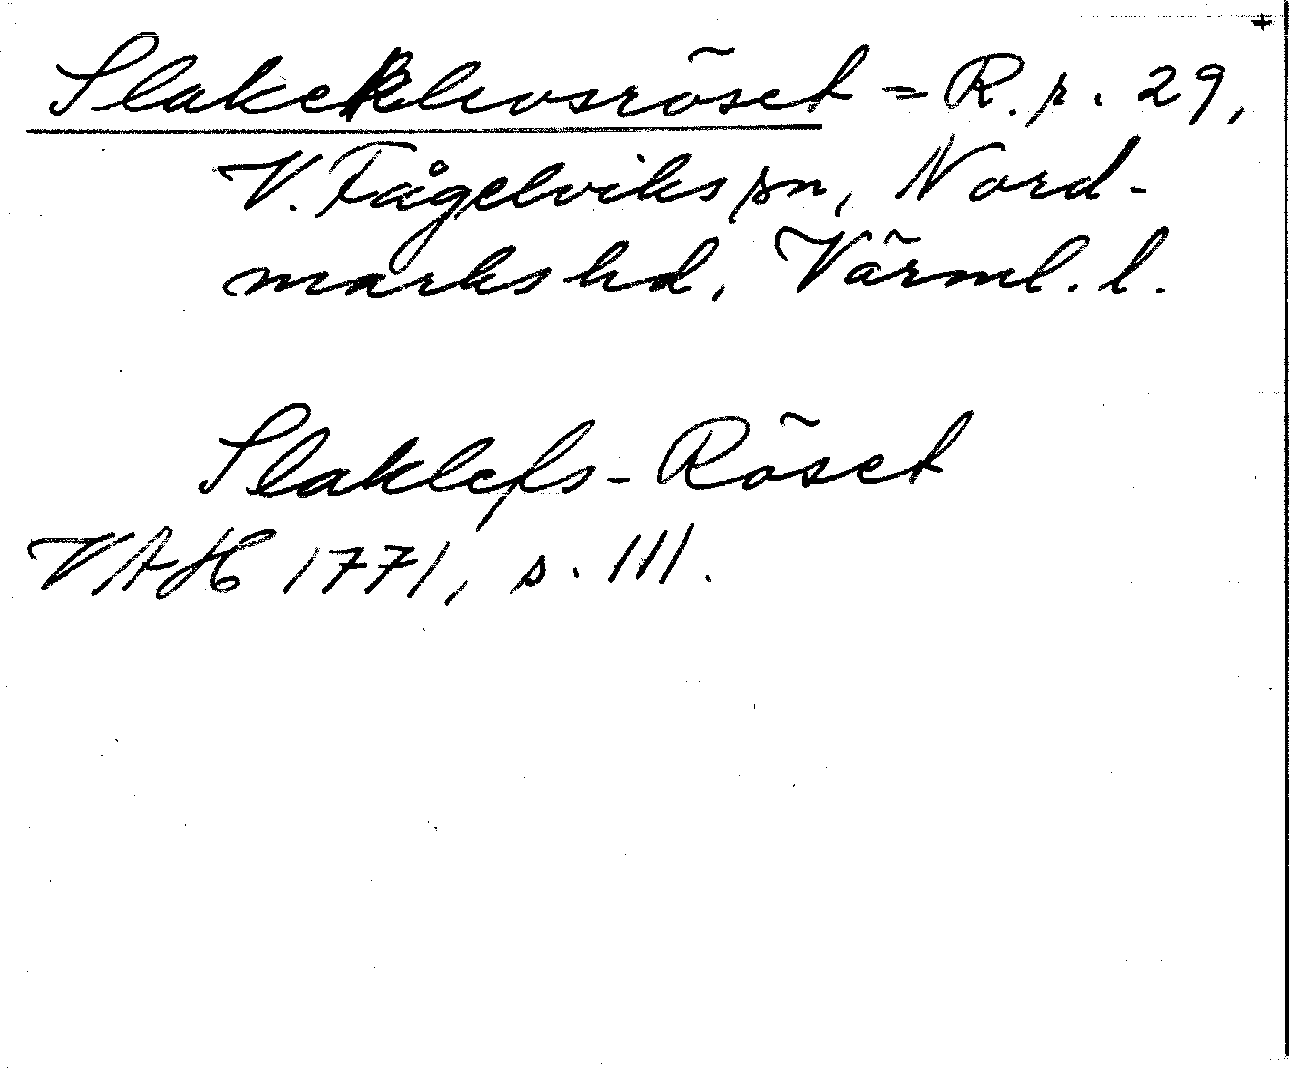 Slakeklevsröset = R.r. 29,
V. Fågelviks sn, Nord-
marks hd, Värml. l.
Slaklefs-Röset
VAH 1771, s. 111.